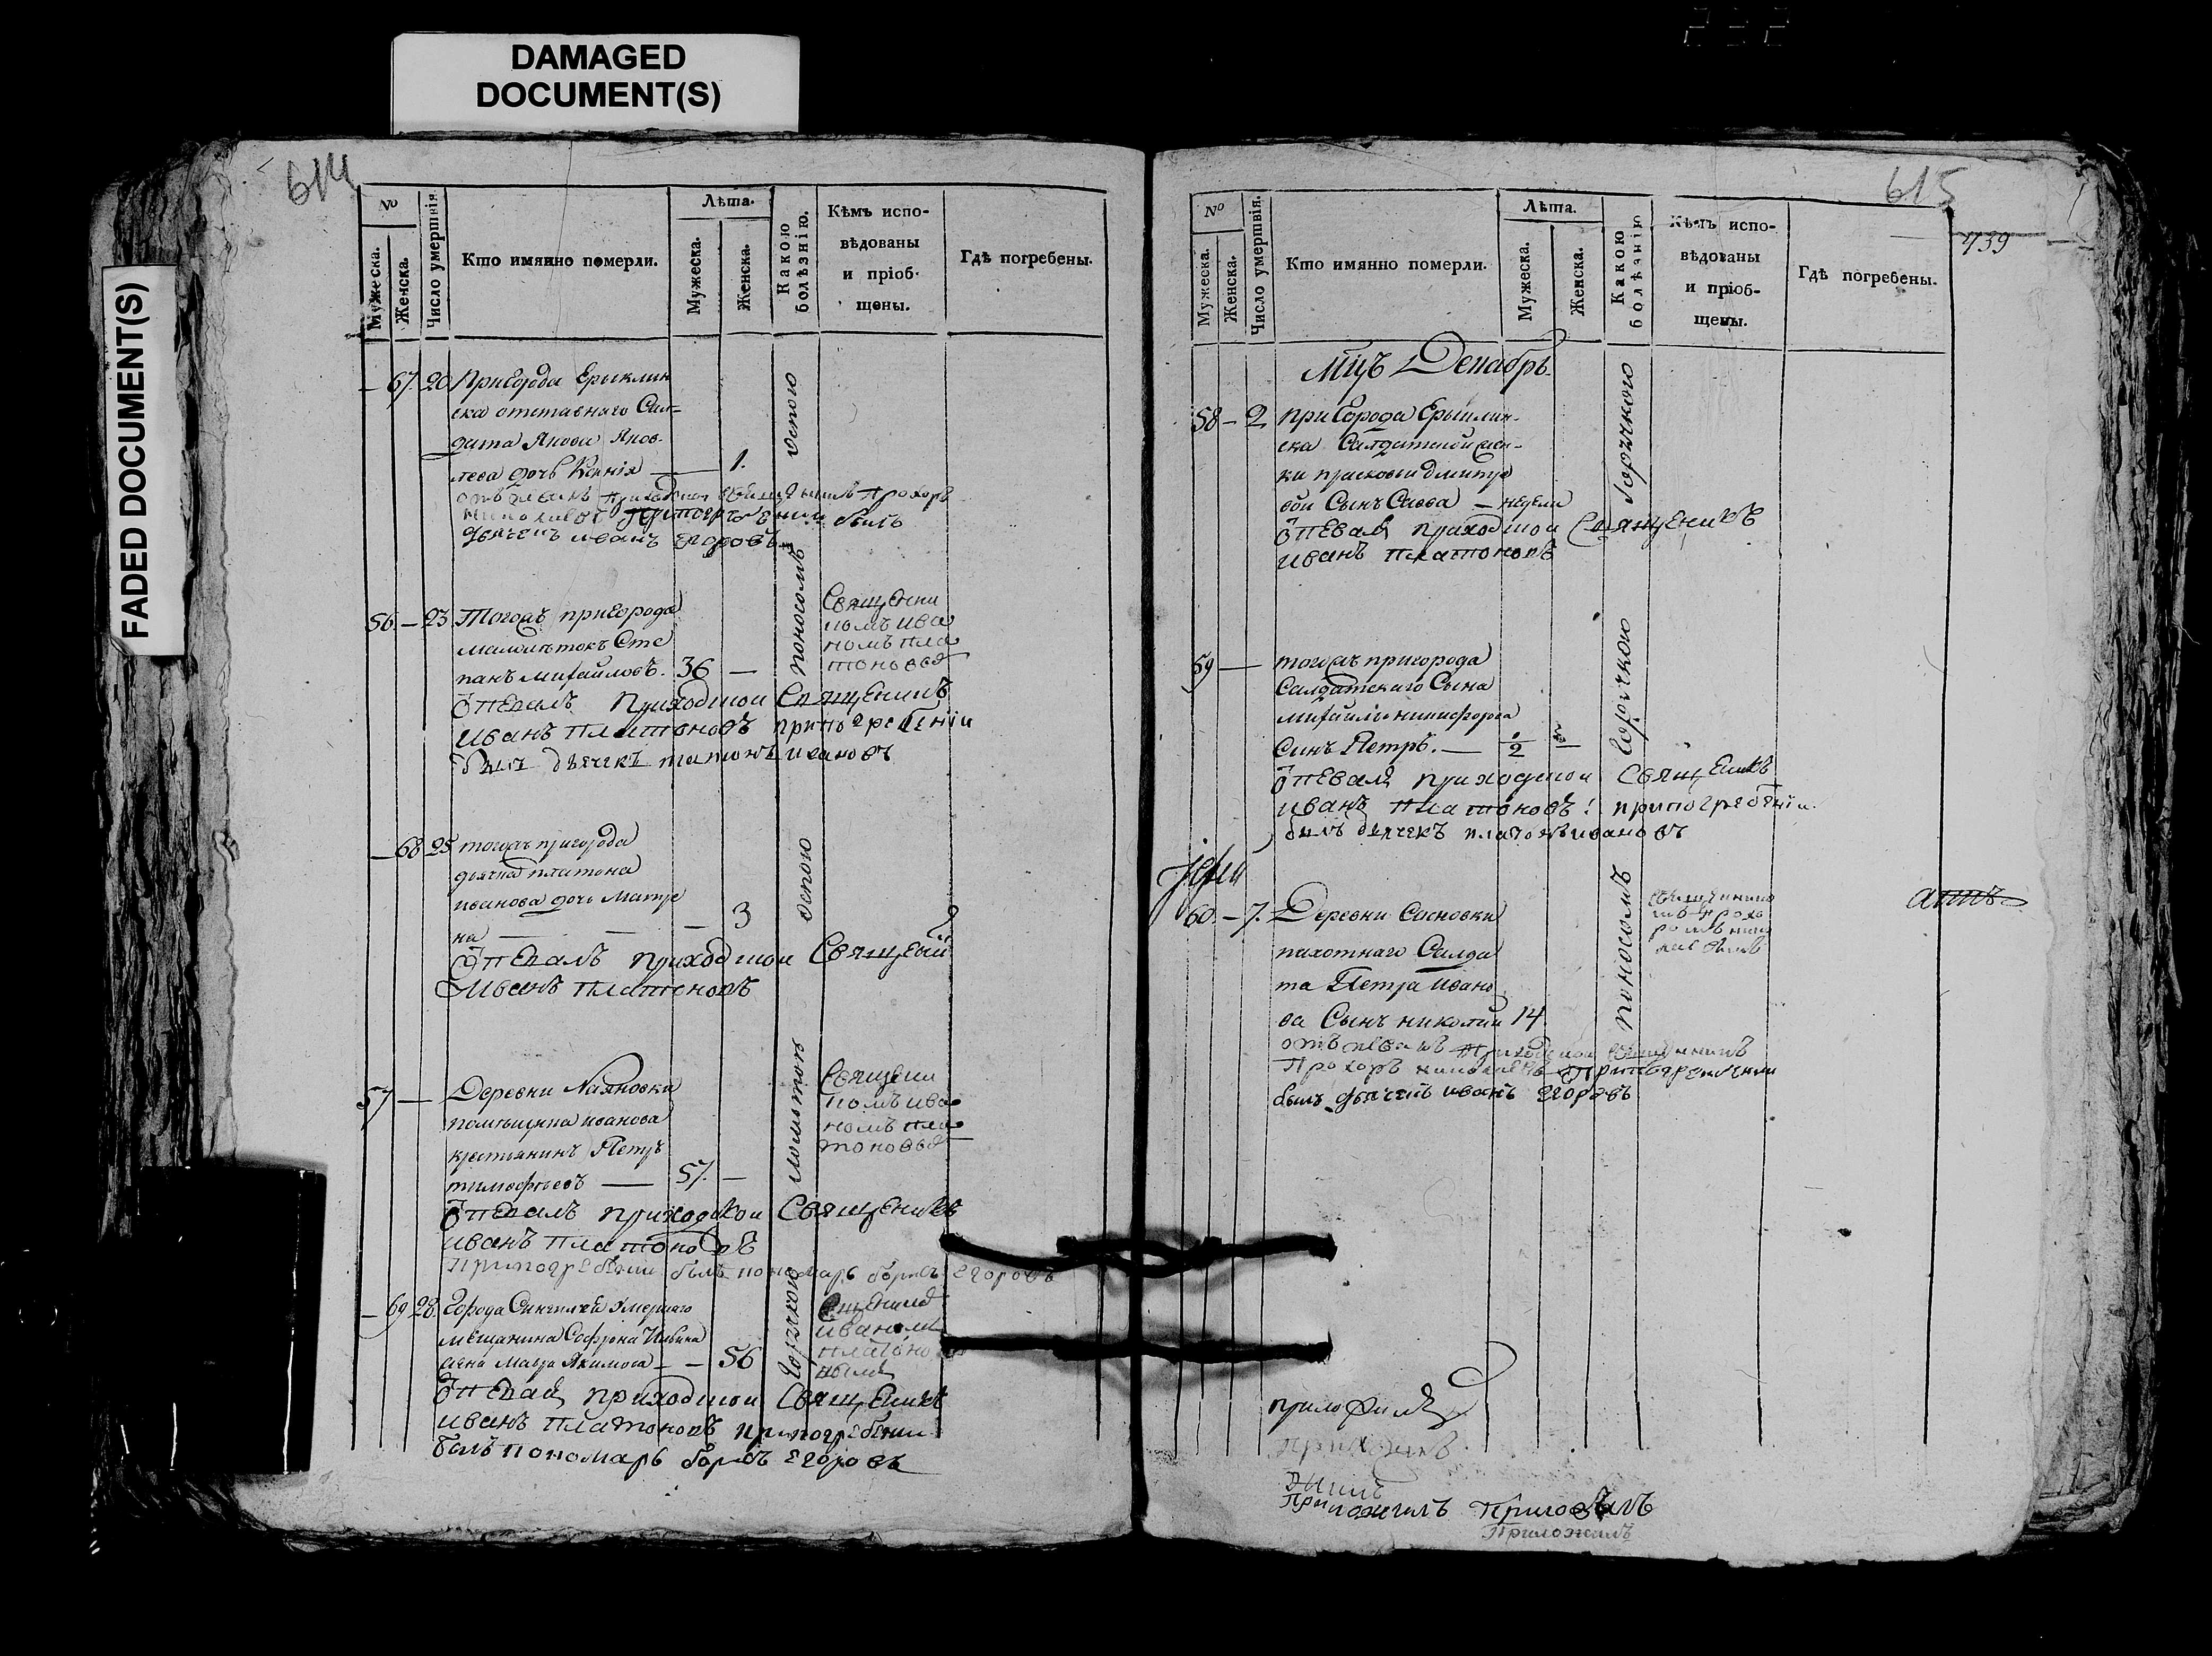 DAMAGED
DOCUMENT(S)
FADED DOCUMENT(S)
614
№
Мужеска.
Женска.
Число умершвія.
Кто имянно померли.
Лѣта.
Мужеска.
Женска.
Какою болѣзнію.
Кѣмъ испо-
вѣдованы
и пріоб-
щены.
Гдѣ погребены.
— 67. 20 Пригорода Ерыклин
ска отставнаго Сал-
дата Якова Яков
лева дочь Ксенія — 1.
оспою
Прохоръ
при погребении былъ
дьячекъ иванъ егоровъ
56. — 23. Тогожъ пригорода
малолѣтокъ Сте
панъ михайловъ. 36 —
поносомъ
Священни
комъ ива
номъ пла
тоновы
отпевалъ приходской Священникъ
иванъ платоновъ при погребении
былъ дьячекъ платонъ ивановъ
— 68 25 тогожъ пригорода
дьячка платона
иванова дочь Матре
на — — — 3
оспою
отпевалъ приходской Священи
Иванъ платоновъ
57 — Деревни Наяновки
помещика иванова
крестьянинъ Петръ
тимофеевъ — 57. —
Священи
комъ ива
номъ пла
тоновы
отпевалъ приходской Священикъ
иванъ платоновъ
При погребении былъ пономарь борисъ егоровъ
— 69 28. Города Сингилея умершаго
мещанина Софрона Ильина
жена Мавра Якимова — — 56
горячкою
иваномъ
платоно
вымъ
отпевал приходской Священикъ
иванъ платоновъ при погребении
былъ пономарь борисъ егоровъ
615
739
№
Мужеска.
Женска.
Число умершвія.
Кто имянно померли.
Лѣта.
Мужеска.
Женска.
Какою болѣзнію
Кѣмъ испо-
вѣдованы
и пріоб-
щены.
Гдѣ погребены.
Мцъ Декабрь.
58 — 2 пригорода Ерыклин-
ска Салдатской жен-
ки прасковьи дмитре
вой Сынъ Савва — недели
горячкою
отпевал приходской Священикъ
иванъ платоновъ
59 — тогожъ пригорода
Салдатскаго Сына
михаилы никифорова
Сынъ Петръ. — 1/2 —
горячкою
отпевал приходской Священикъ
иванъ платоновъ при погребении
былъ дьячекъ платонъ ивановъ
60. — 7. Деревни Сосновки
пахотнаго Салда
та Петра Ивано
ва Сынъ николай 14
поносомъ
отпевалъ приходской священикъ
Прохоръ при погребении
былъ дьячекъ иванъ егоровъ
Приложилъ
Приложилъ